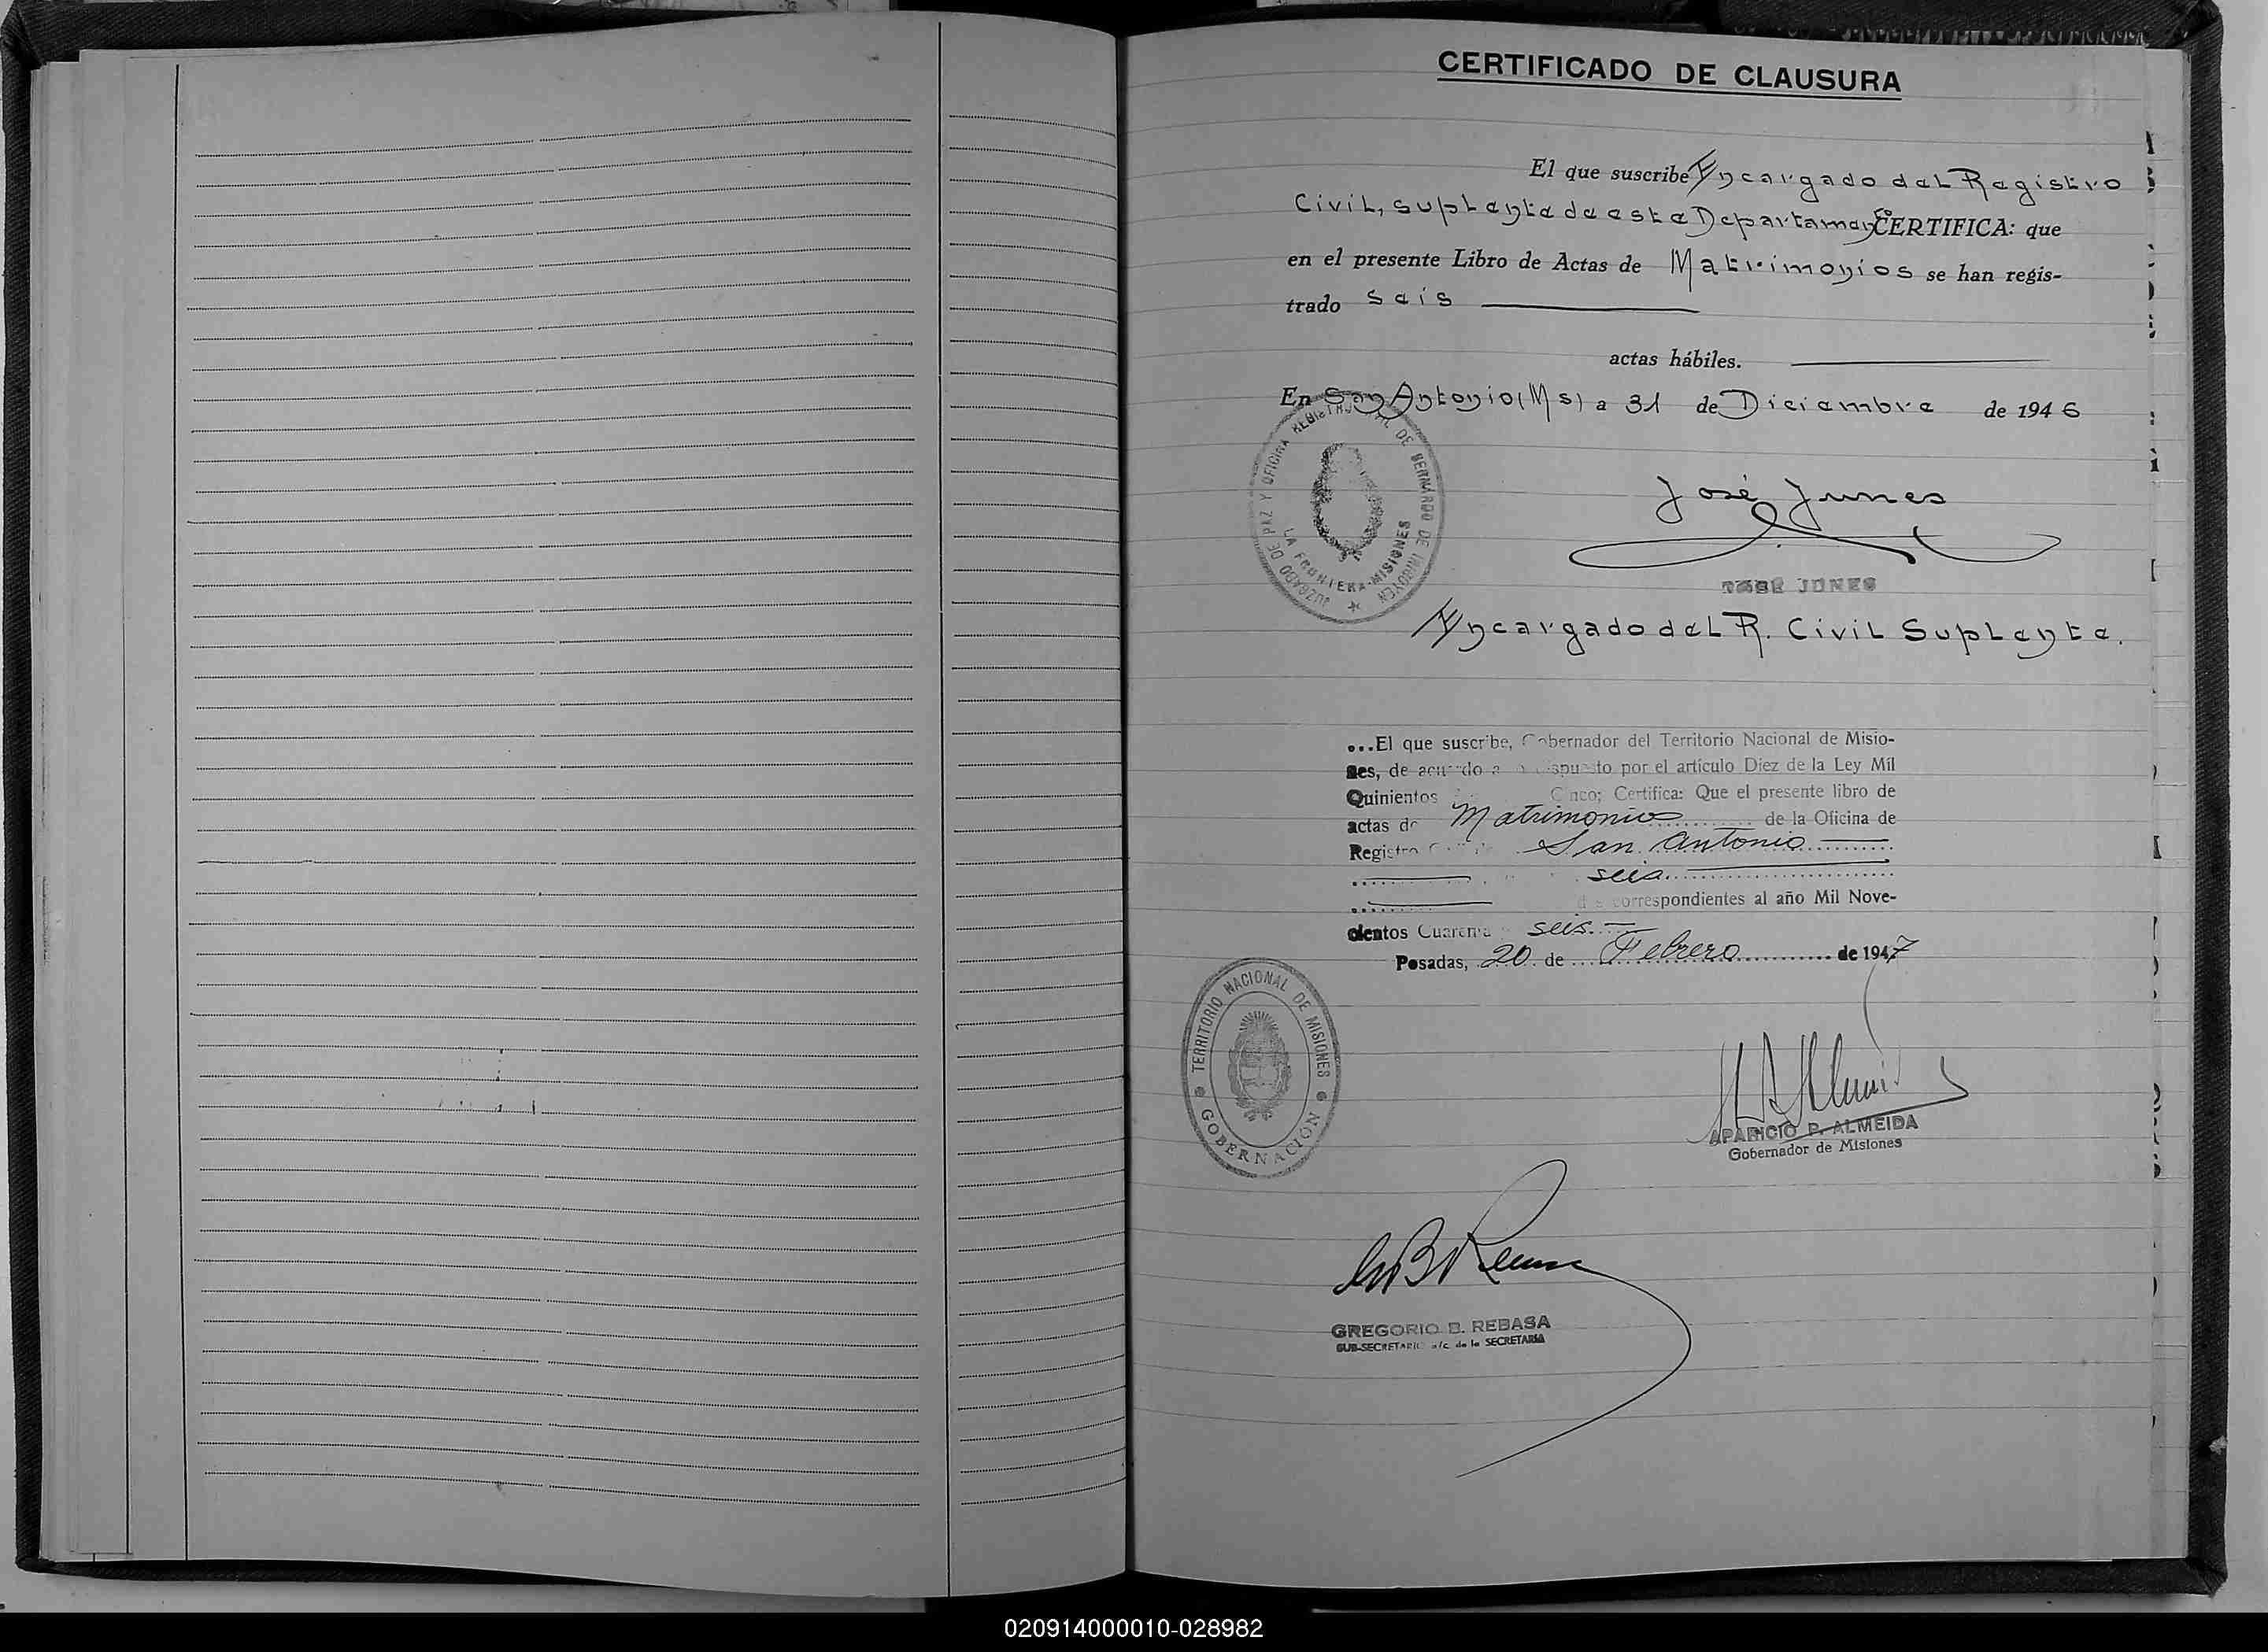 CERTIFICADO DE CLAUSURA
El que suscribe Encargado del Registro
Civil, suplente de este Departamento CERTIFICA: que
en el presente Libro de Actas de Matrimonios se han regis-
trado Seis
actas hábiles.
En San Antonio (Ms) a 31 de Diciembre de 1946
JUZGADO DE PAZ Y OFICINA REGISTRO CIVIL DE BERNARDO DE IRIGOYEN
LA FRONTERA-MISIONES
José Junes
JOSE JUNES
Encargado del R. Civil Suplente.
...El que suscribe, Gobernador del Territorio Nacional de Misio-
nes, de acuerdo a lo dispuesto por el artículo Diez de la Ley Mil
Quinientos Cinco; Certifica: Que el presente libro de
actas de Matrimonios de la Oficina de
Registro San Antonio
seis
correspondientes al año Mil Nove-
cientos Cuarenta seis.
Posadas, 20 de Febrero de 1947
TERRITORIO NACIONAL DE MISIONES
GOBERNACIÓN
APARICIO P. ALMEIDA
Gobernador de Misiones
GREGORIO B. REBASA
SUB-SECRETARIO a/c de la SECRETARIA
020914000010-028982